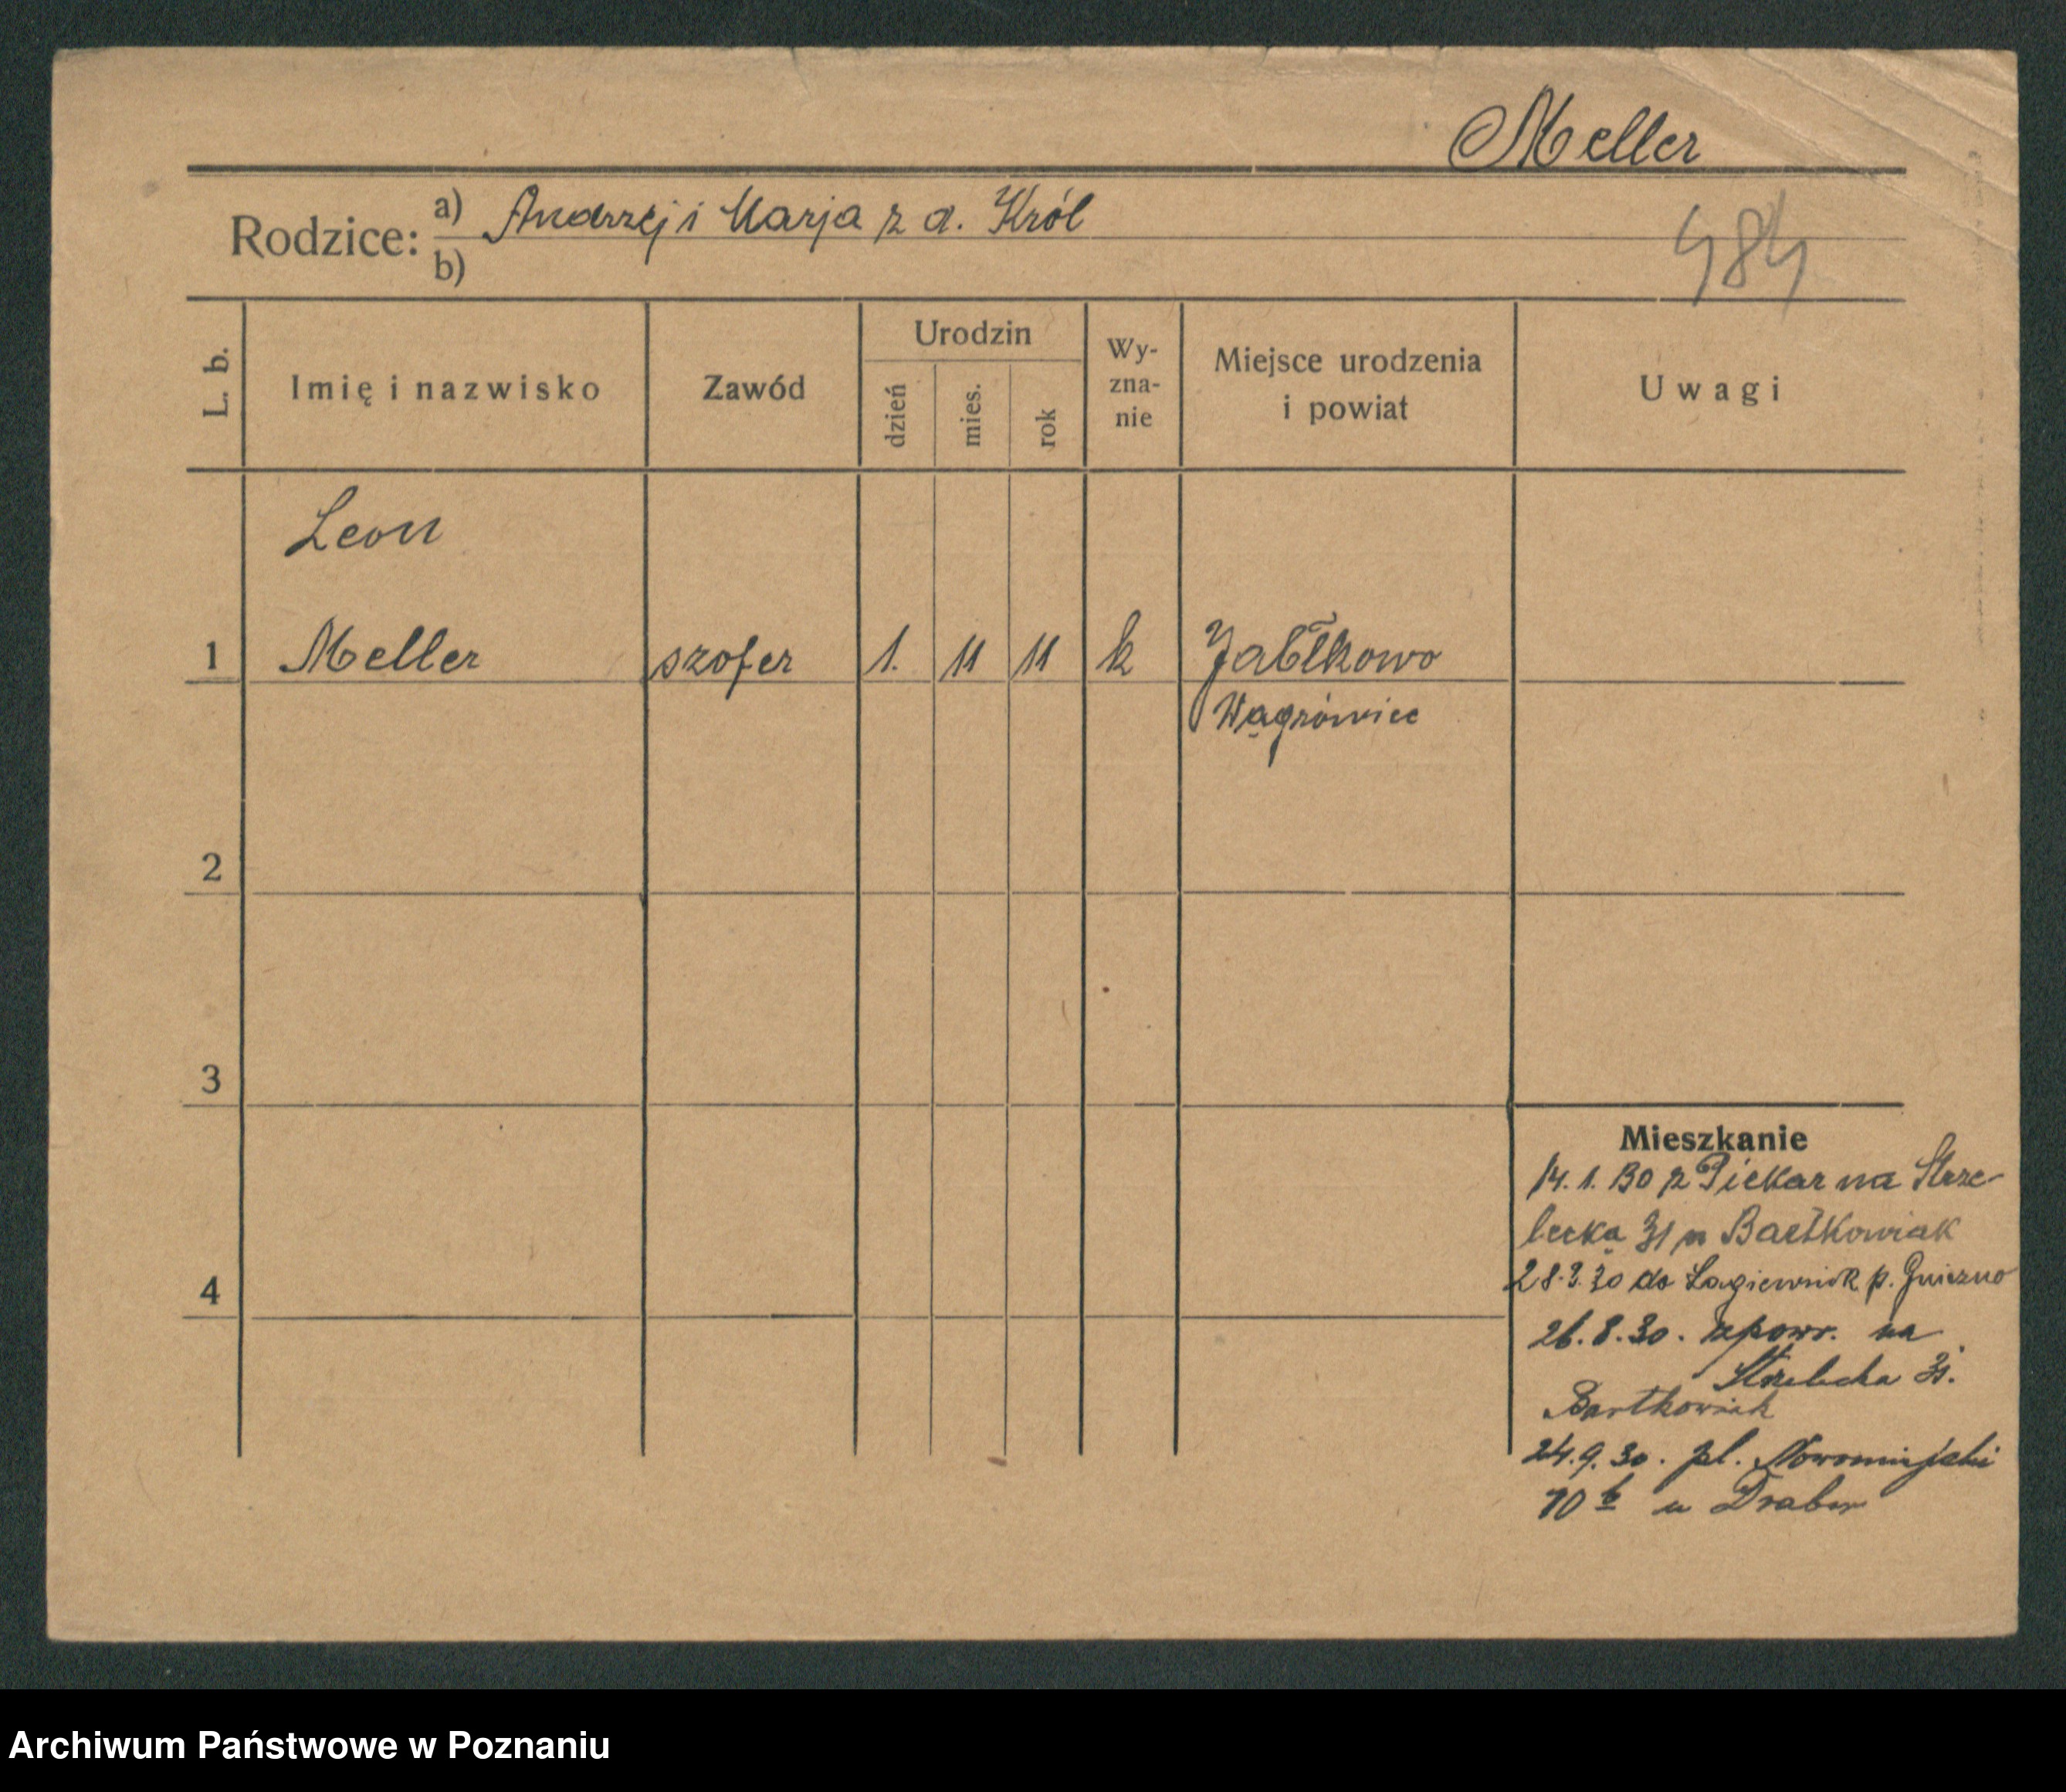 Meller
Rodzice: a) Andrzej i Marja z d. Król
b)
484
L. b.
Imię i nazwisko
Zawód
Urodzin
dzień
mies.
rok
Wy-
zna-
nie
Miejsce urodzenia
i powiat
Uwagi
Leon
1 Meller szofer 1. 11 11 k Jabłkowo
Wągrówiec
2
3
4
Mieszkanie
14. 1. 30 z Piekar na Strze-
lecką 31 u Bartkowiak
28.3.30 do Łagiewnik p. Gniezno
26.8.30. zpowr. na
Strzelecka 31.
Bartkowiak
24.9.30. pl. Nowomiejski
10 b u
Archiwum Państwowe w Poznaniu